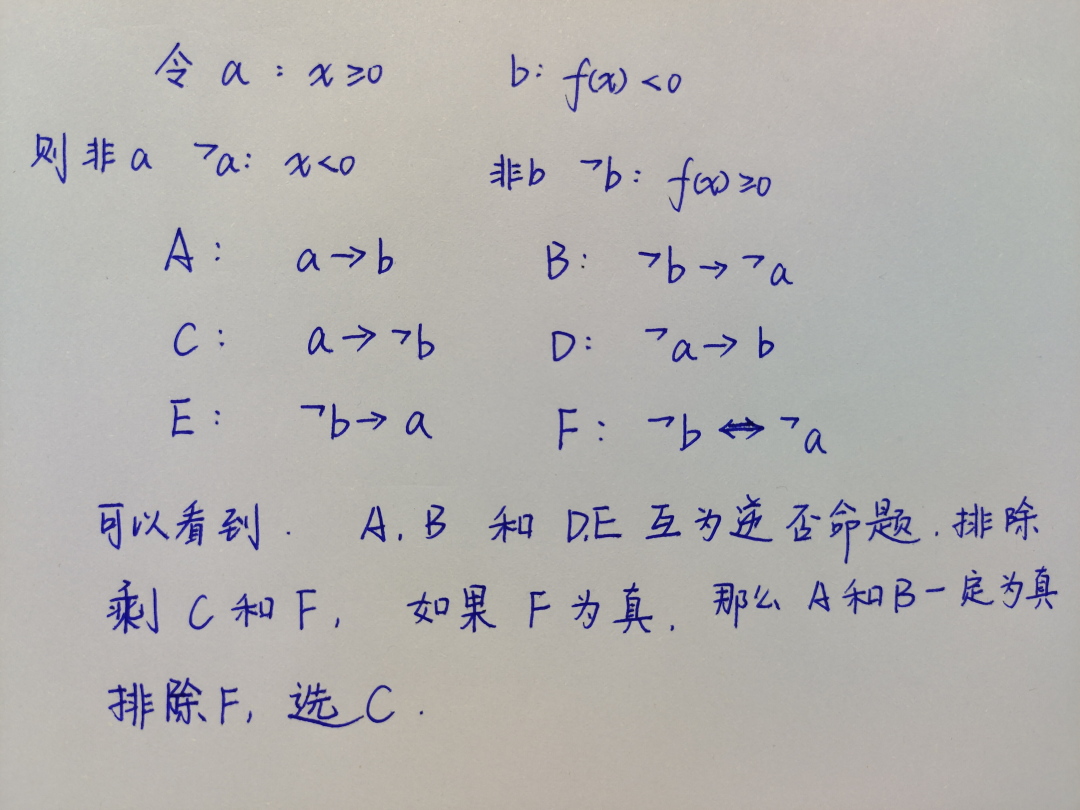 令 a : x≥0 b: f(x)<0
则非a ¬a: x<0 非b ¬b: f(x)≥0
A: a→b B: ¬b→¬a
C: a→¬b D: ¬a→b
E: ¬b→a F: ¬b⇔¬a
可以看到. A,B 和 D,E 互为逆否命题.排除
剩 C和F, 如果 F为真, 那么 A和B一定为真
排除F, 选C.